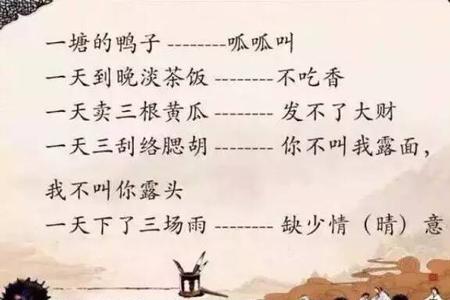 一塘的鸭子--------呱呱叫
一天到晚淡茶饭--------不吃香
一天卖三根黄瓜--------发不了大财
一天三刮络腮胡--------你不叫我露面，
我不叫你露头
一天下了三场雨--------缺少情（晴）意